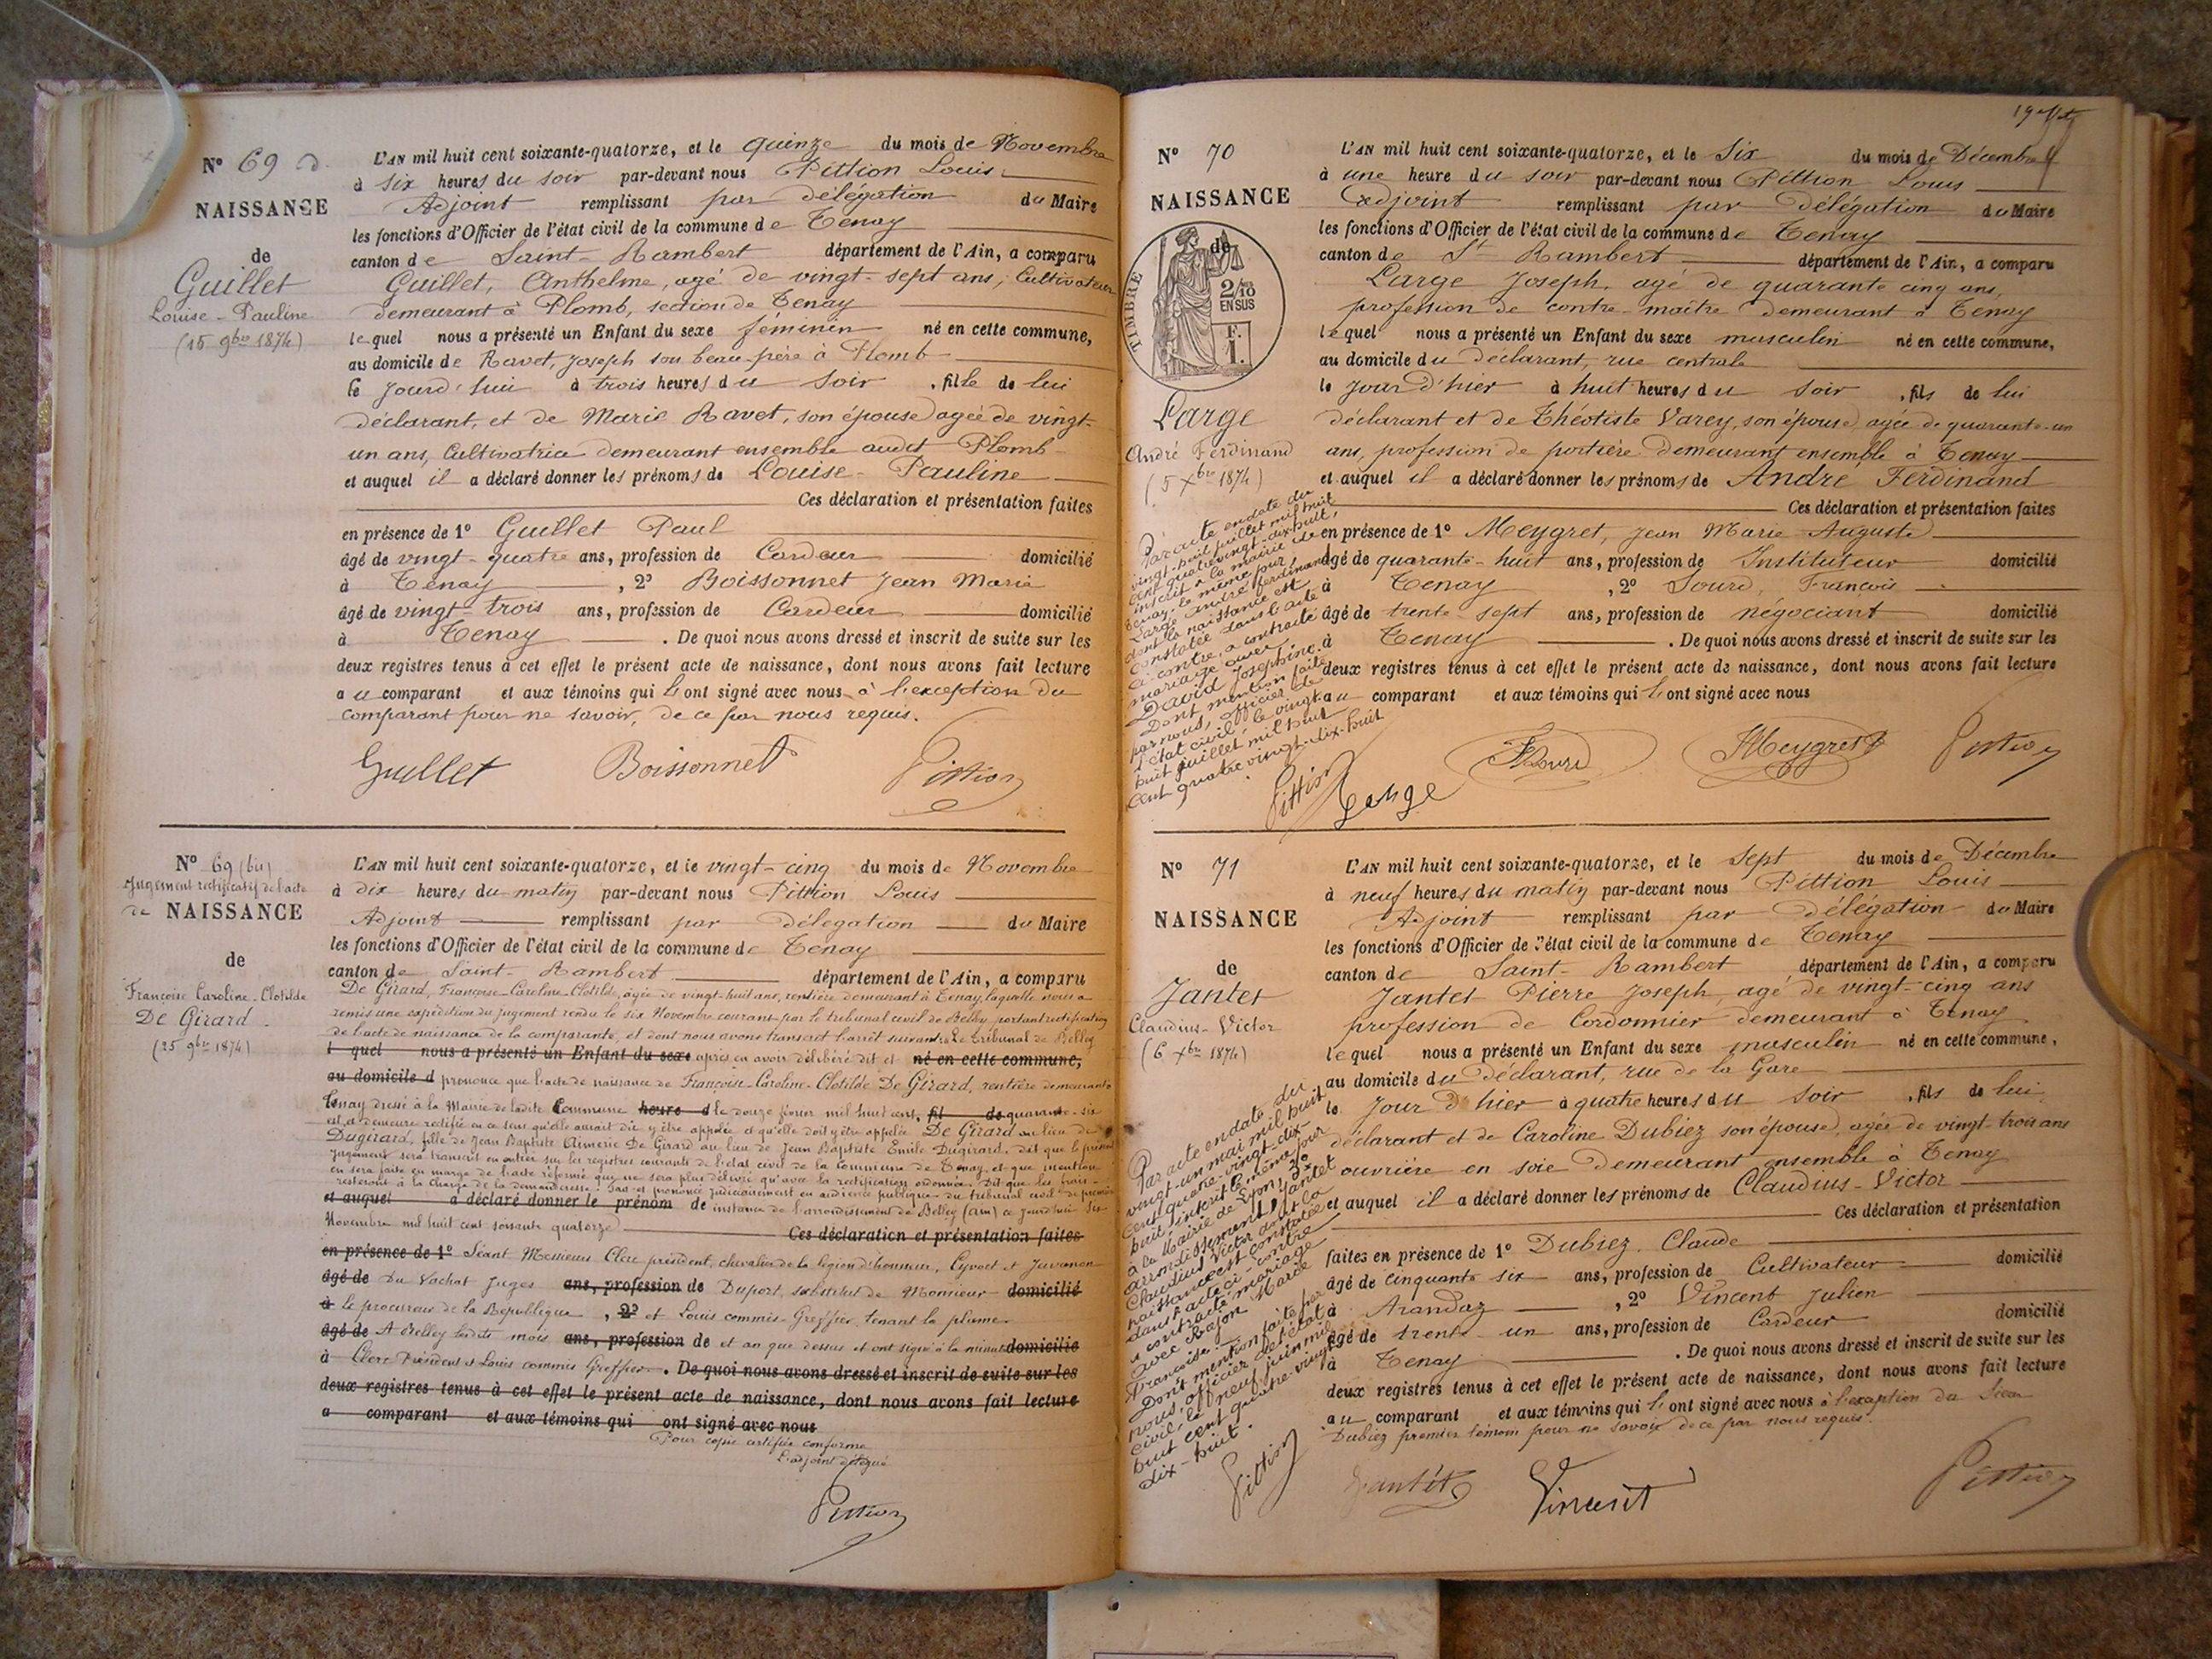 N° 69
NAISSANCE
de
Guillet
Louise-Pauline
(15 9bre 1874)
L'AN mil huit cent soixante-quatorze, et le quinze du mois de Novembre
à six heures du soir par-devant nous Pittion Louis
Adjoint remplissant par délégation du Maire
les fonctions d'Officier de l'état civil de la commune de Tenay
canton de Saint-Rambert département de l'Ain, a comparu
Guillet, Anthelme, agé de vingt-sept ans, Cultivateur
demeurant à Plomb, section de Tenay
lequel nous a présenté un Enfant du sexe féminin né en cette commune,
au domicile de Ravet, Joseph son beau-père à Plomb
le jourd'hui à trois heures du soir, fille de lui
déclarant, et de Marie Ravet, son épouse agée de vingt-
un ans, Cultivatrice demeurant ensemble audit Plomb
et auquel il a déclaré donner les prénoms de Louise-Pauline
Ces déclaration et présentation faites
en présence de 1° Guillet Paul
âgé de vingt-quatre ans, profession de Cardeur domicilié
à Tenay, 2° Boissonnet Jean Marie
âgé de vingt-trois ans, profession de Cardeur domicilié
à Tenay. De quoi nous avons dressé et inscrit de suite sur les
deux registres tenus à cet effet le présent acte de naissance, dont nous avons fait lecture
au comparant et aux témoins qui l'ont signé avec nous à l'exception du
comparant pour ne savoir, de ce par nous requis.
Guillet Boissonnet Pittion
N° 69 (bis)
Jugement rectificatif de l'acte
de NAISSANCE
de
Françoise Caroline-Clotilde
De Girard
(25 9bre 1874)
L'AN mil huit cent soixante-quatorze, et le vingt-cinq du mois de Novembre
à dix heures du matin par-devant nous Pittion Louis
Adjoint remplissant par délégation du Maire
les fonctions d'Officier de l'état civil de la commune de Tenay
canton de Saint-Rambert département de l'Ain, a comparu
De Girard, Françoise-Caroline-Clotilde, agée de vingt-huit ans, rentière demeurant à Tenay, laquelle nous a
remis une expédition du jugement rendu le six Novembre courant par le tribunal civil de Belley, portant rectification
de l'acte de naissance de la comparante, et dont nous avons transcrit l'arrêt suivant: Le tribunal de Belley
l quel nous a présenté un Enfant du sexe après en avoir délibéré dit et né en cette commune,
au domicile d prononce que l'acte de naissance de Françoise-Caroline-Clotilde De Girard, rentière demeurant à
Tenay dressé à la Mairie de ladite Commune heure d le douze février mil huit cent, fil de quarante-six
est et demeure rectifié en ce sens qu'elle aurait dû y être appelée et qu'elle doit y être appelée De Girard au lieu de
Dugirard, fille de Jean Baptiste Aimerie De Girard au lieu de Jean Baptiste Emile Dugirard, dit que le présent
jugement sera transcrit en entier sur les registres courants de l'état civil de la Commune de Tenay et que mention
en sera faite en marge de l'acte réformé qui ne sera plus délivré qu'avec la rectification ordonnée. Dit que les frais
resteront à la charge de la demanderesse. Fait et prononcé judiciairement en audience publique du tribunal civil de première
et auquel a déclaré donner le prénom de instance de l'arrondissement de Belley (Ain) ce jourd'hui six
Novembre mil huit cent soixante quatorze Ces déclaration et présentation faites
en présence de 1° Séant Messieurs Clerc président, chevalier de la légion d'honneur, Cyvoct et
âgé de Du Vachat Juges ans, profession de Duport, substitut de Monsieur domicilié
à le procureur de la République, 2° et Louis commis Greffier tenant la plume
âgé de A Belley lesdits mois ans, profession de et an que dessus et ont signé à la minute domicilié
à Clerc Président et Louis commis Greffier. De quoi nous avons dressé et inscrit de suite sur les
deux registres tenus à cet effet le présent acte de naissance, dont nous avons fait lecture
a comparant et aux témoins qui ont signé avec nous
Pour copie certifiée conforme
L'adjoint délégué
Pittion
N° 70
NAISSANCE
de
TIMBRE
2/10
EN SUS
F.
1.
Large
André Ferdinand
(5 xbre 1874)
Par acte en date du
vingt-huit juillet mil huit
cent quatre vingt-dix-huit,
inscrit à la mairie de
Tenay, le même jour,
Large André Ferdinand
dont la naissance est
constatée dans l'acte
ci-contre, a contracté
mariage avec
David Joséphine.
Dont mention faite
par nous, officier de
l'état civil, le vingt-
huit juillet mil huit
cent quatre vingt-dix-huit
Pittion
L'AN mil huit cent soixante-quatorze, et le six du mois de Décembre
à une heure du soir par-devant nous Pittion Louis
Adjoint remplissant par délégation du Maire
les fonctions d'Officier de l'état civil de la commune de Tenay
canton de St Rambert département de l'Ain, a comparu
Large Joseph, agé de quarante cinq ans,
profession de contre-maître demeurant à Tenay
lequel nous a présenté un Enfant du sexe masculin né en cette commune,
au domicile du déclarant, rue centrale
le jour d'hier à huit heures du soir, fils de lui
déclarant et de Théotiste Varey, son épouse, agée de quarante-un
ans, profession de portière demeurant ensemble à Tenay
et auquel il a déclaré donner les prénoms de André Ferdinand
Ces déclaration et présentation faites
en présence de 1° Meygret, Jean Marie Auguste
âgé de quarante-huit ans, profession de Instituteur domicilié
à Tenay, 2° Sourd, François
âgé de trente sept ans, profession de négociant domicilié
à Tenay. De quoi nous avons dressé et inscrit de suite sur les
deux registres tenus à cet effet le présent acte de naissance, dont nous avons fait lecture
au comparant et aux témoins qui l'ont signé avec nous
Large FSourd Meygret Pittion
N° 71
NAISSANCE
de
Jantet
Claudius-Victor
(6 xbre 1874)
Par acte en date du
vingt-un mai mil huit
cent quatre-vingt-dix-
huit, inscrit le même jour
à la Mairie de Lyon, 3e
arrondissement, Jantet
Claudius Victor dont la
naissance est constatée
dans l'acte ci-contre
a contracté mariage
avec Bajon Marie
Françoise.
Dont mention faite par
nous, officier de l'état
civil, le neuf juin mil
huit cent quatre-vingt-
dix-huit.
Pittion
L'AN mil huit cent soixante-quatorze, et le sept du mois de Décembre
à neuf heures du matin par-devant nous Pittion Louis
Adjoint remplissant par délégation du Maire
les fonctions d'Officier de l'état civil de la commune de Tenay
canton de Saint-Rambert département de l'Ain, a comparu
Jantet Pierre Joseph, agé de vingt-cinq ans
profession de Cordonnier demeurant à Tenay
lequel nous a présenté un Enfant du sexe masculin né en cette commune,
au domicile du déclarant, rue de la Gare
le jour d'hier à quatre heures du soir, fils de lui
déclarant et de Caroline Dubiez son épouse, agée de vingt-trois ans
ouvrière en soie demeurant ensemble à Tenay
et auquel il a déclaré donner les prénoms de Claudius-Victor
Ces déclaration et présentation
faites en présence de 1° Dubiez Claude
âgé de cinquante six ans, profession de Cultivateur domicilié
à Arandaz, 2° Vincent Julien
âgé de trente-un ans, profession de Cardeur domicilié
à Tenay. De quoi nous avons dressé et inscrit de suite sur les
deux registres tenus à cet effet le présent acte de naissance, dont nous avons fait lecture
au comparant et aux témoins qui l'ont signé avec nous à l'exception du sieur
Dubiez premier témoin pour ne savoir de ce par nous requis.
Jantet Vincent Pittion